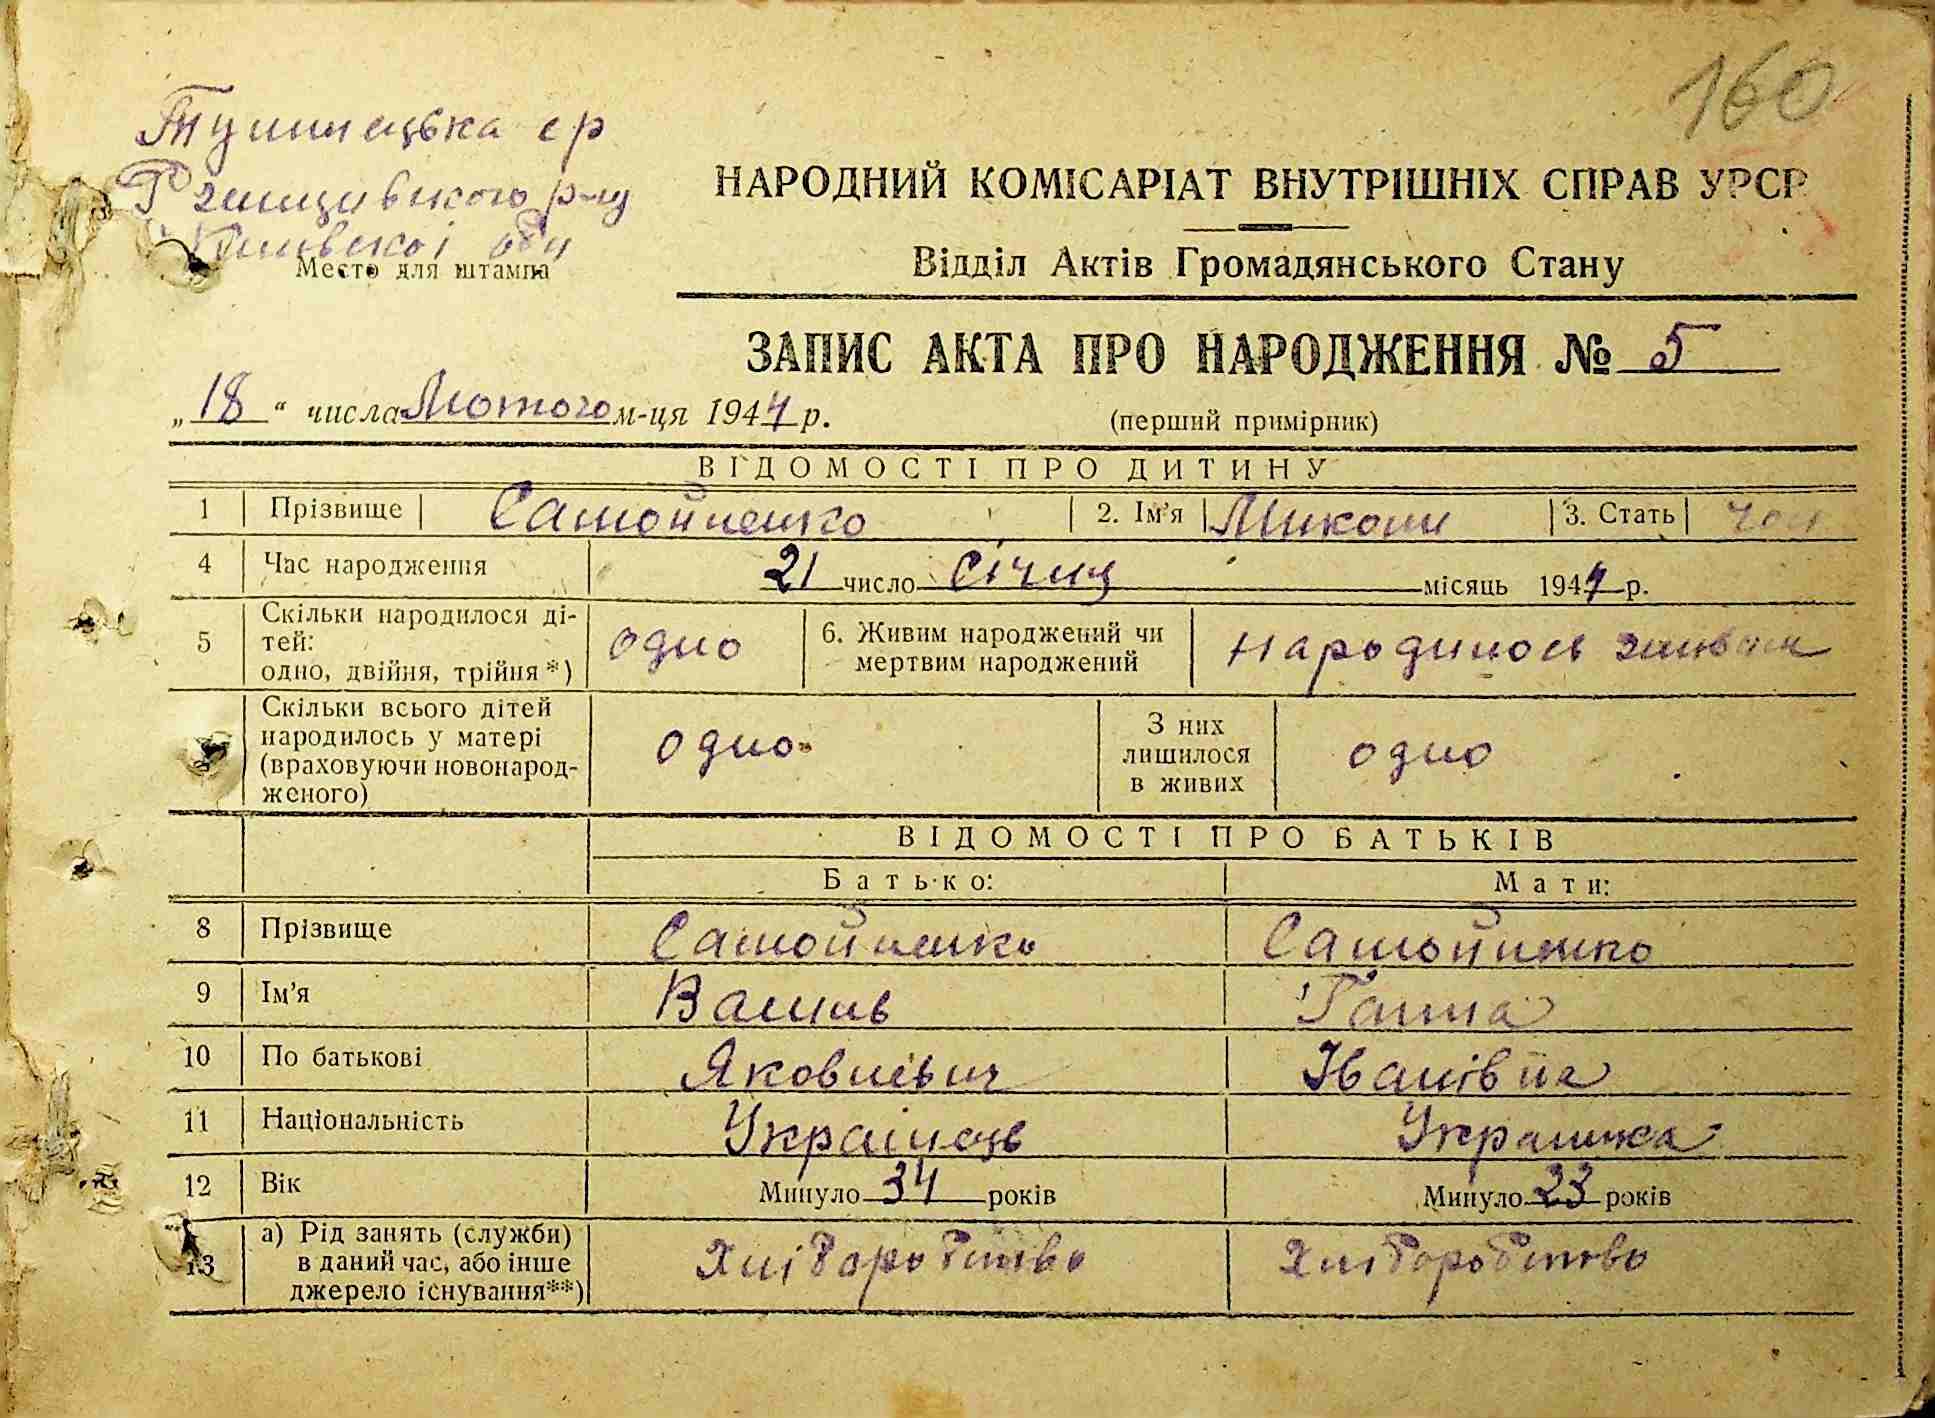 160
Тулинецька с р
Ржищивського р-ну
Київської обл
Место для штампа
НАРОДНИЙ КОМІСАРІАТ ВНУТРІШНІХ СПРАВ УРСР
Відділ Актів Громадянського Стану
ЗАПИС АКТА ПРО НАРОДЖЕННЯ № 5
„18“ числа Лютого м-ця 1944 р.
(перший примірник)
ВІДОМОСТІ ПРО ДИТИНУ
1 Прізвище Самойленко 2. Ім’я Микола 3. Стать чол
4 Час народження 21 число січня місяць 1944 р.
5 Скільки народилося ді-
тей:
одно, двійня, трійня*) одно 6. Живим народжений чи
мертвим народжений народилось живим
Скільки всього дітей
народилось у матері
(враховуючи новонарод-
женого) одно З них
лишилося
в живих одно
ВІДОМОСТІ ПРО БАТЬКІВ
Батько: Мати:
8 Прізвище Самойленко Самойленко
9 Ім’я Василь Ганна
10 По батькові Яковлевич Іванівна
11 Національність Українець Українка
12 Вік Минуло 34 років Минуло 23 років
13 а) Рід занять (служби)
в даний час, або інше
джерело існування**) Хліборобство Хліборобство